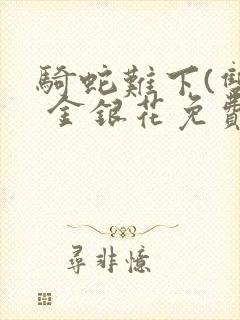 騎蛇難下(雙
金銀花免費
尋非憶